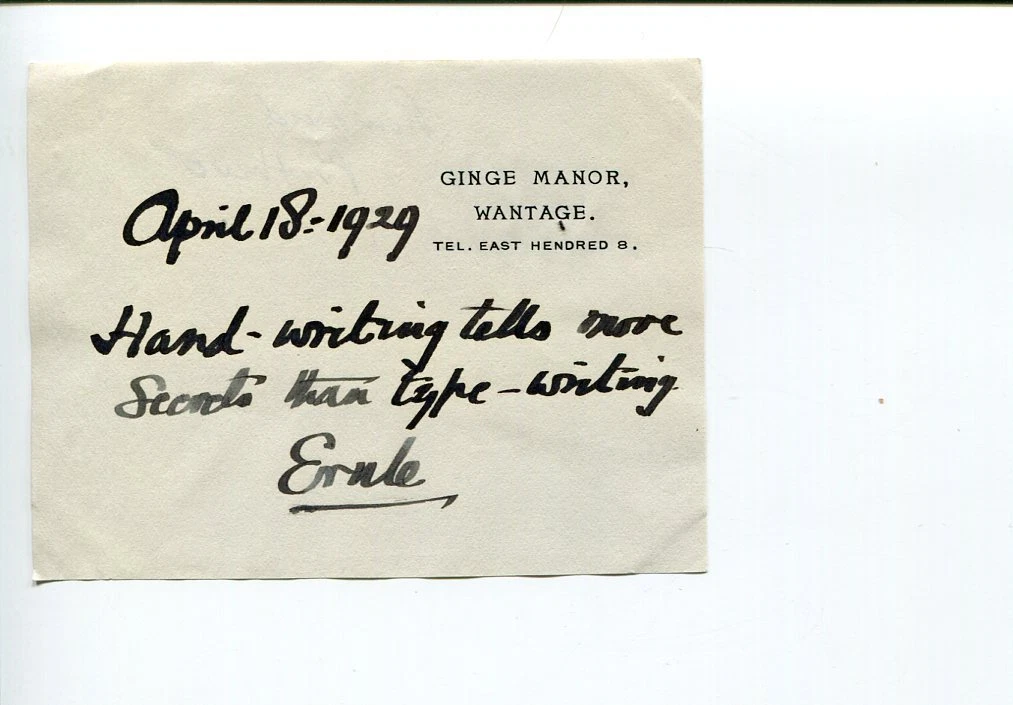 GINGE MANOR,
WANTAGE.
TEL. EAST HENDRED 8.
April 18 - 1929
Hand-writing tells more
Secrets than type-writing
Ernle